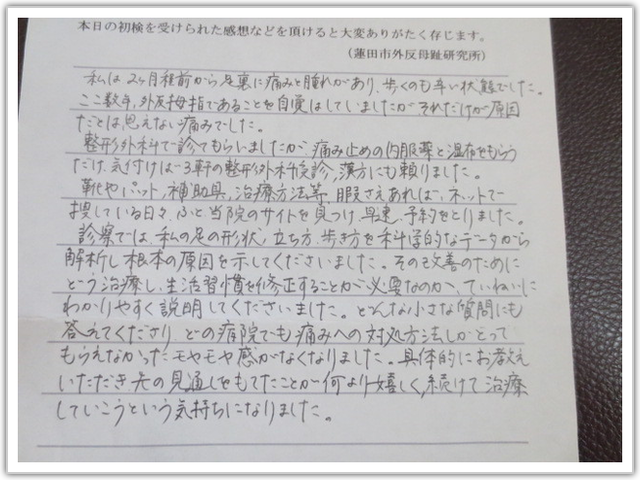 本日の初検を受けられた感想などを頂けると大変ありがたく存じます。
(蓮田市外反母趾研究所)
私は2ヶ月程前から足裏に痛みと腫れがあり、歩くのも辛い状態でした。
ここ数年、外反拇指であることを自覚はしていましたがそれだけが原因
だとは思えない痛みでした。
整形外科で診てもらいましたが、痛み止めの内服薬と湿布をもらう
だけ、気付けば3軒の整形外科受診、漢方にも頼りました。
靴やパット、補助具、治療方法等、暇さえあれば、ネットで
捜している日々、ふと当院のサイトを見つけ、早速、予約をとりました。
診察では、私の足の形状、立ち方、歩き方を科学的なデータから
解析し根本の原因を示してくださいました。その改善のために
どう治療し、生活習慣を修正することが必要なのか、ていねいに
わかりやすく説明してくださいました。どんな小さな質問にも
答えてくださり、どの病院でも痛みへの対処方法しかとって
もらえなかったモヤモヤ感がなくなりました。具体的にお教え
いただき、先の見通しをもてたことが何より嬉しく、続けて治療
していこうという気持ちになりました。